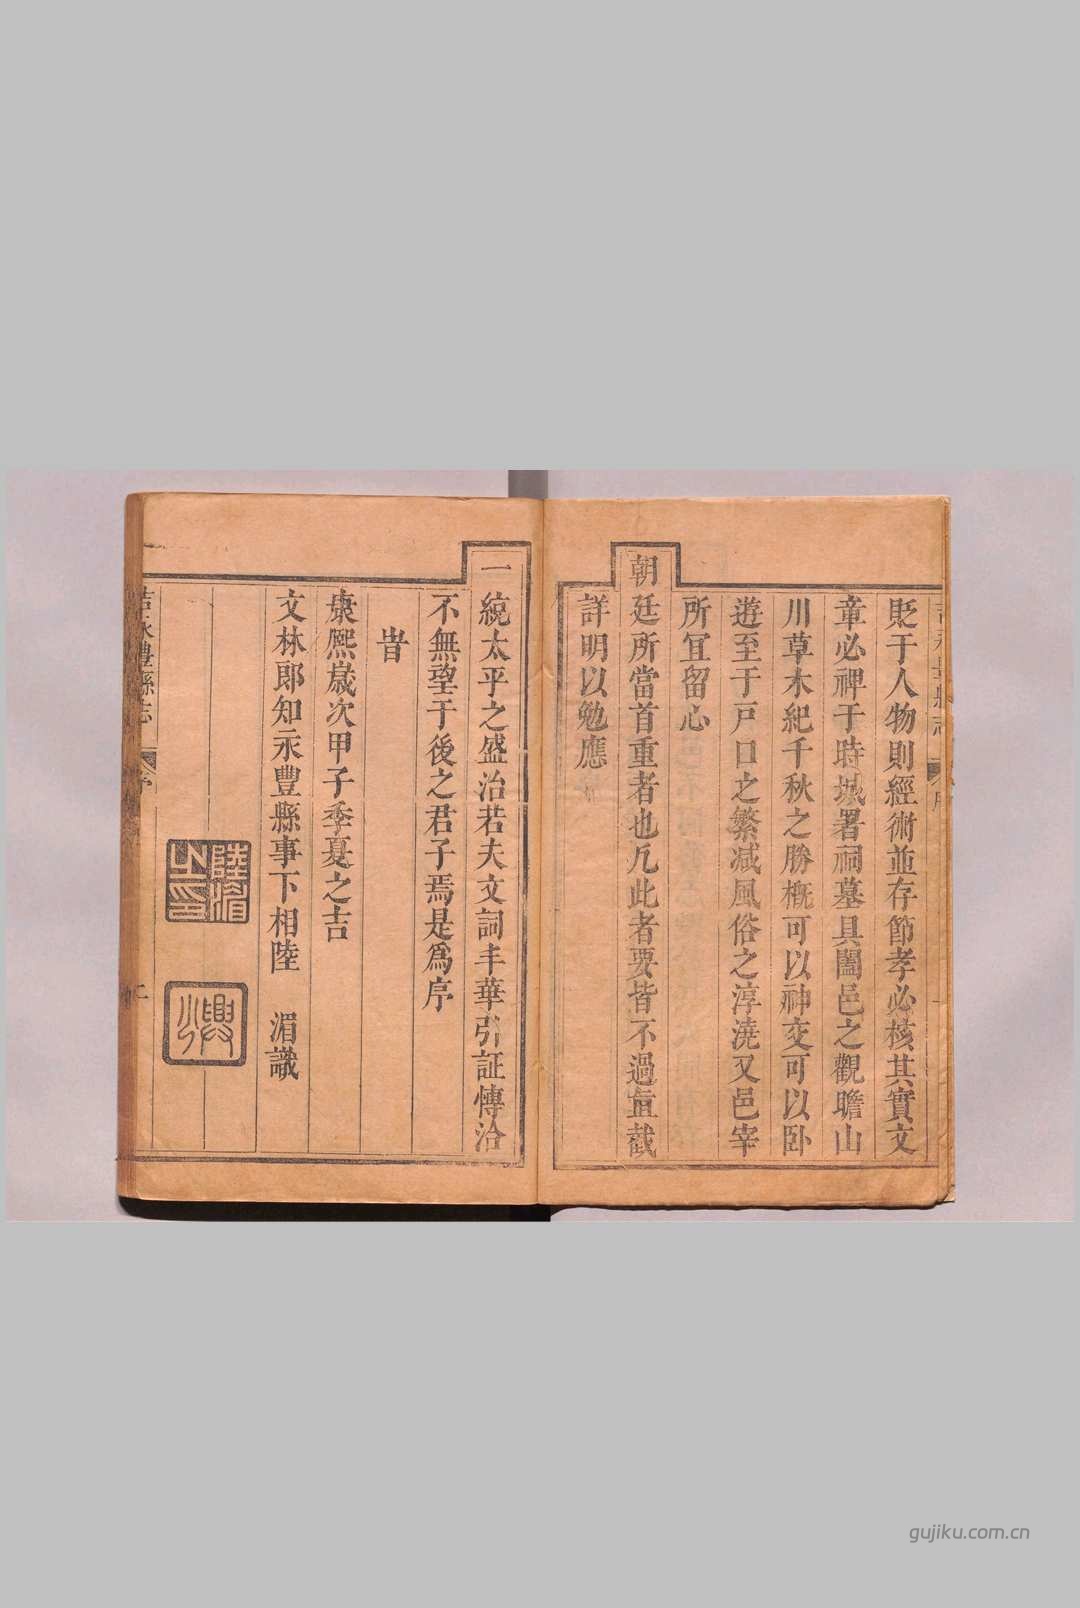 貶于人物則經術並存節孝必核其實文
章必裨于時城署祠墓具闔邑之觀瞻山
川草木紀千秋之勝概可以神交可以卧
遊至于戸口之繁减風俗之淳澆又邑宰
所冝留心
朝廷所當首重者也凢此者要皆不過直截
詳明以勉應
一統太平之盛治若夫文詞丰華引証慱洽
不無望于後之君子焉是爲序
旹
康熙歲次甲子季夏之吉
文林郎知永豐縣事下相陸 湄識
陸湄之印
吉永豐縣志
序
gujiku.com.cn